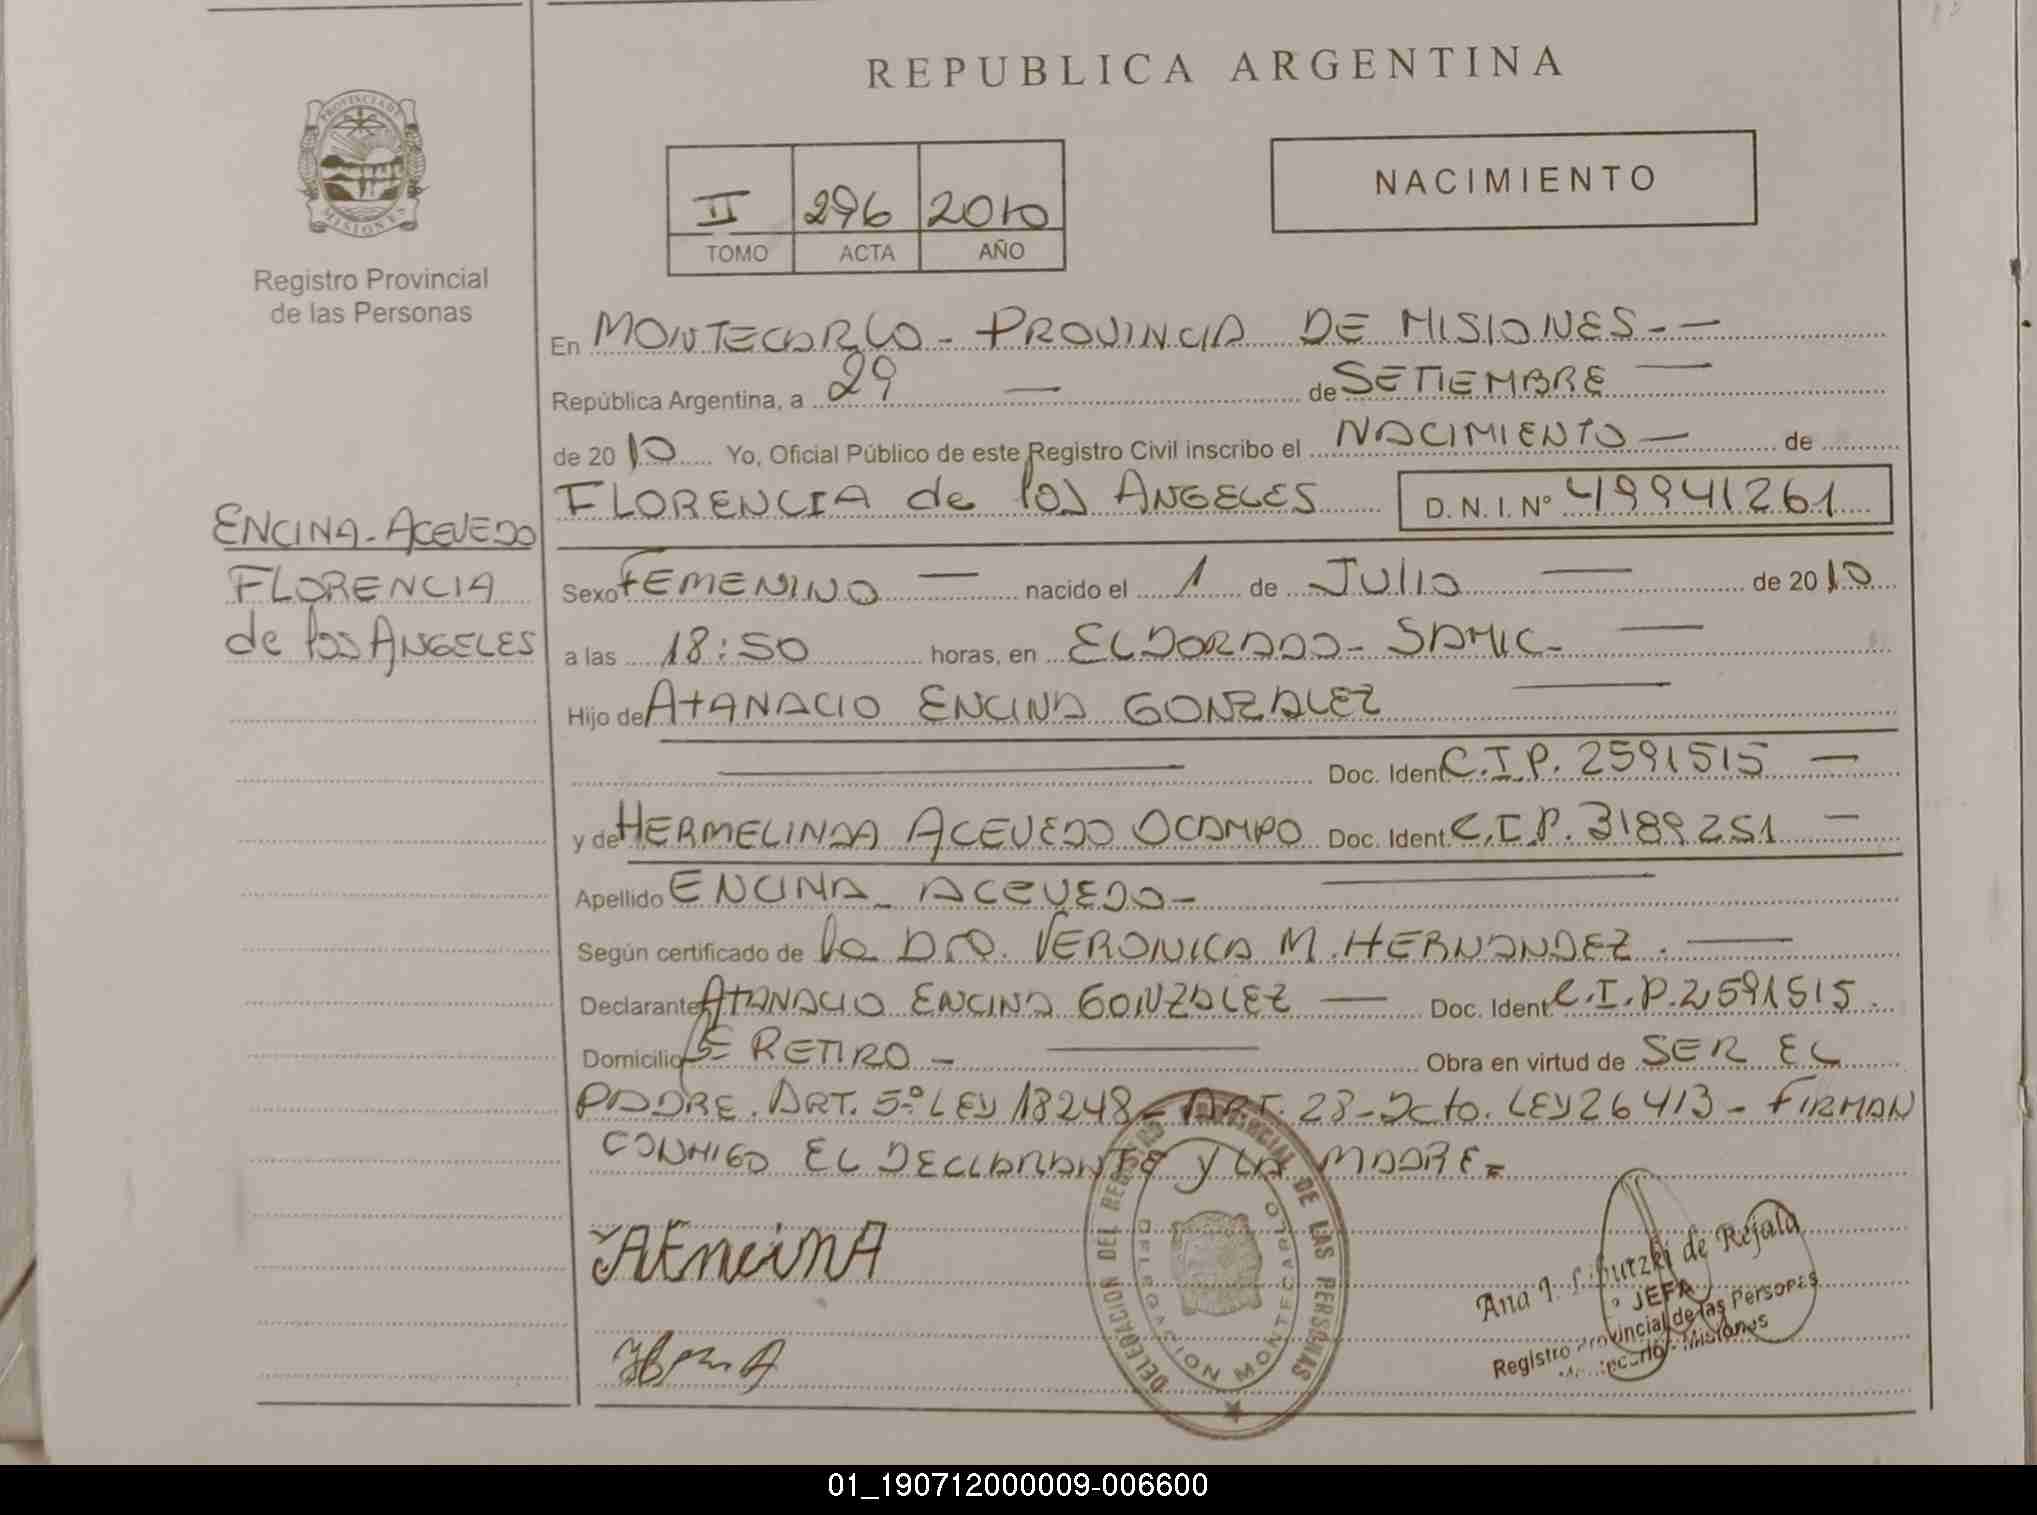 REPUBLICA ARGENTINA
PROVINCIA DE
MISIONES
Registro Provincial
de las Personas
II 296 2010
TOMO ACTA AÑO
NACIMIENTO
En MONTECARLO - PROVINCIA DE MISIONES - —
República Argentina, a 29 — de SETIEMBRE —
de 2010 Yo, Oficial Público de este Registro Civil inscribo el NACIMIENTO — de
FLORENCIA de los ANGELES D.N.I. Nº 49941261
ENCINA - ACEVEDO
FLORENCIA
de los ANGELES
Sexo FEMENINO — nacido el 1 de JULIO — de 2010
a las 18:50 horas, en ELDORADO - SAMIC - —
Hijo de ATANACIO ENCINA GONZALEZ —
— Doc. Ident. C.I.P. 2591515 —
y de HERMELINDA ACEVEDO OCAMPO Doc. Ident. C.I.P. 3189251 —
Apellido ENCINA - ACEVEDO - —
Según certificado de la DRA. VERONICA M. HERNANDEZ. —
Declarante ATANACIO ENCINA GONZALEZ — Doc. Ident. C.I.P. 2591515.
Domicilio RETIRO - — Obra en virtud de SER EL
PADRE. ART. 5º LEY 18248 - ART. 28 - Dcto. LEY 26413 - FIRMAN
CONMIGO EL DECLARANTE y LA MADRE =
AEncinA
DELEGACION DEL REGISTRO PROVINCIAL DE LAS PERSONAS
DELEGACION MONTECARLO
Ana de Rejala
JEFA
Registro Provincial de las Personas
Montecarlo - Misiones
01_190712000009-006600